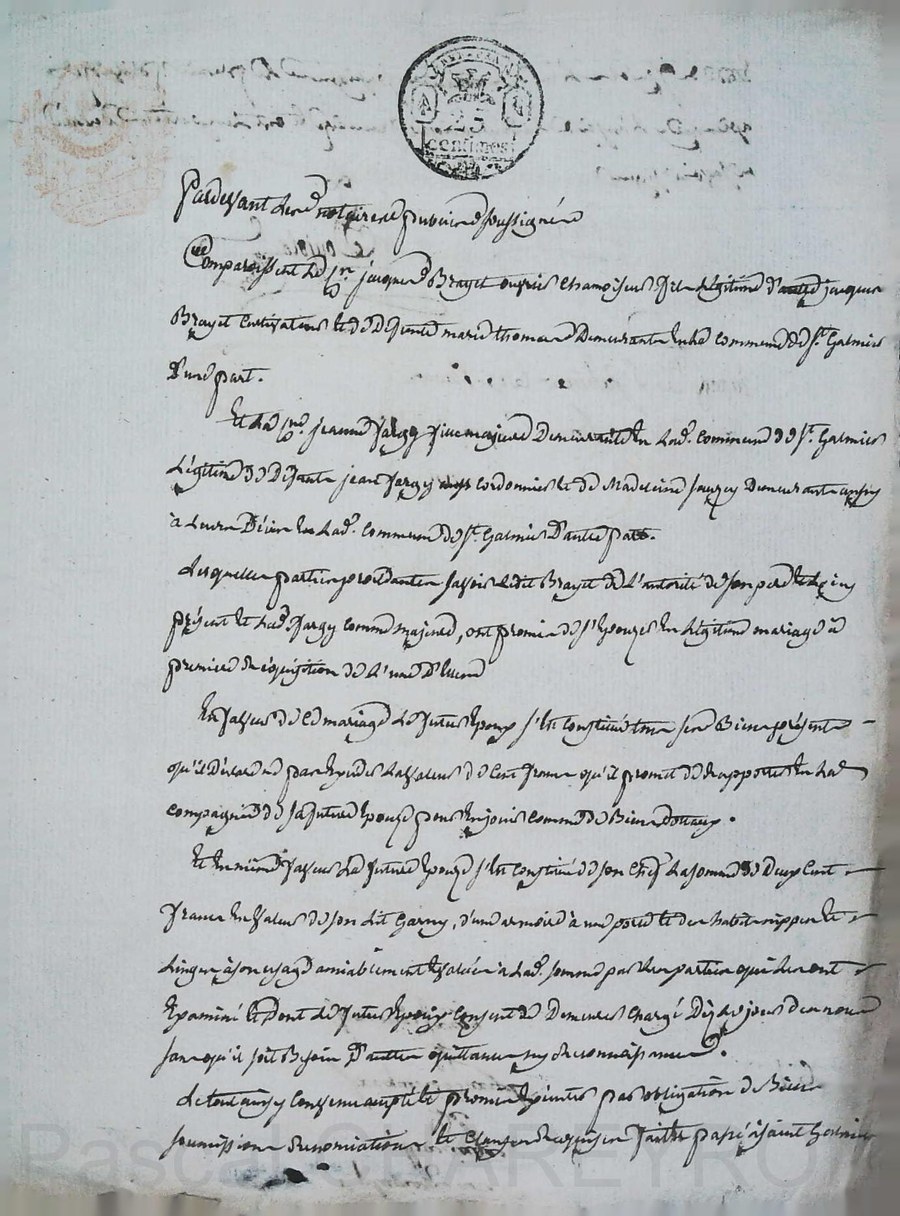 25
centimes
Pardevant les notaires publics soussignés
Comparoissent le Sr. jacques Brayet ouvrier chamoiseur fils légitime d'autre jacques
Brayet cultivateur et de défunte marie thomas Demeurants en la commune de St. Galmier
D'une part.
Et la jeanne fargy fille majeure Demeurante en lad. commune de St. Galmier
Légitime de Défunt jean fargy cordonnier et de Madeleine Demeurant
à en lad. commune de St. Galmier D'autre part.
Lesquelles parties procédantes savoir ledit Brayet de l'autorité de son père
présent et lad. fargy comme majeure, ont promis de s'épouzer en légitime mariage à
première réquisition de l'une D'elles
En faveur de ce mariage le futur époux s'est constitué tous ses Biens présents
qu'il déclare être la valeur de cent francs qu'il promet de apporter en la
compagnie de sa future épouze pour en jouir comme de Biens dotaux.
Et en même faveur la future épouze s'est constituée de son chef la somme de Deux Cent
francs en valeur de son lit Garny, d'une armoire à une porte et des habits nippes et
Linges à son usage amiablement évalués à lad. somme par les parties qui les ont
Examiné et dont le futur époux consent de Demeurer chargé Dès le jour des noces
sans qu'il soit Besoin D'autre quittance ny Reconnoissance.
Le tout ainsy convenu accepté et promis par obligation de Biens
soumissions Renonciations et clauses Requises fait et passé à saint Galmier
Pascal CHAREYRON